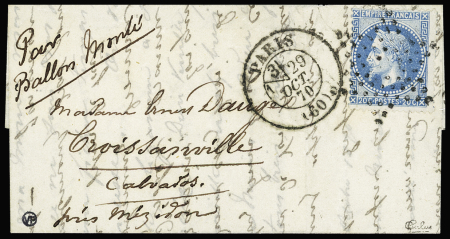 Par
Ballon Monté
PARIS
29
OCT.
70
(60)
EMPIRE FRANÇAIS
20 C POSTES 20 C
Madame Ernest Dauge
Croissanville
Calvados.
près Mézidon